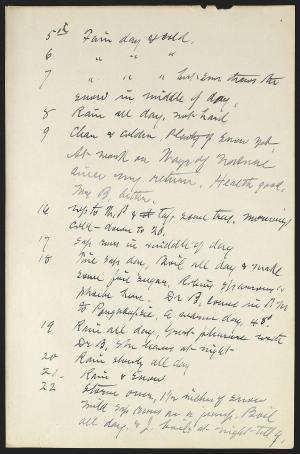 5th Fair day & cold.
6 " " "
7 " " " but sun thaws the
snow in middle of day.
8 Rain all day, not hard
9 Clear & colder. Plenty of snow yet.
At work on Ways of Nature
since my return. Health good,
Mrs B. better.
16 up to the P & tap some trees, morning
cold - down to 20.
17 Sap runs in middle of day
18 Fine sap day, Boil all day & make
some fine sugar. Robins & sparrows &
phoebe here. Dr B. comes in P.M.
to Poughkeepsie, a warm day, 48°
19 Rain all day, great pleasure with
Dr B. She leaves at night
20 Rain steady all day
21- Rain & snow
22 Storm over, 1½ inches of snow.
mild sap runs on a jump. Boil
all day, & J. boils at night till 9.